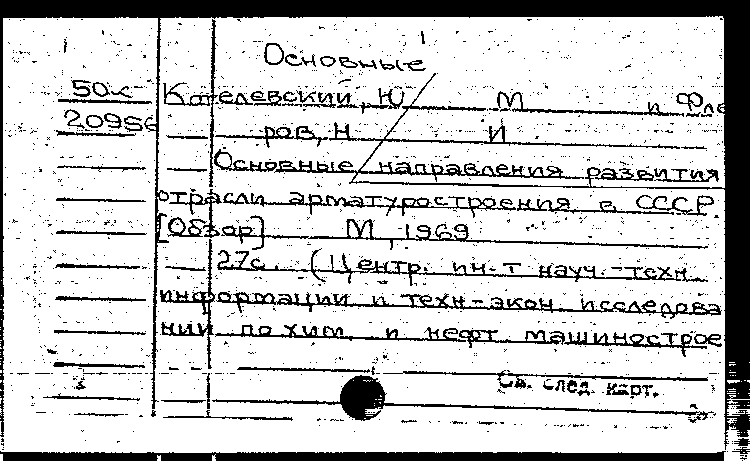 Основные
50к Котелевский, Ю М и Фле
20956 ров, Н И
Основные направления развития
отрасли арматуростроения в СССР.
[Обзор] М, 1969
27с. (Центр. ин-т науч.-техн.
информации и техн-экон. исследова
ний по хим. и нефт. машинострое
См. след. карт.